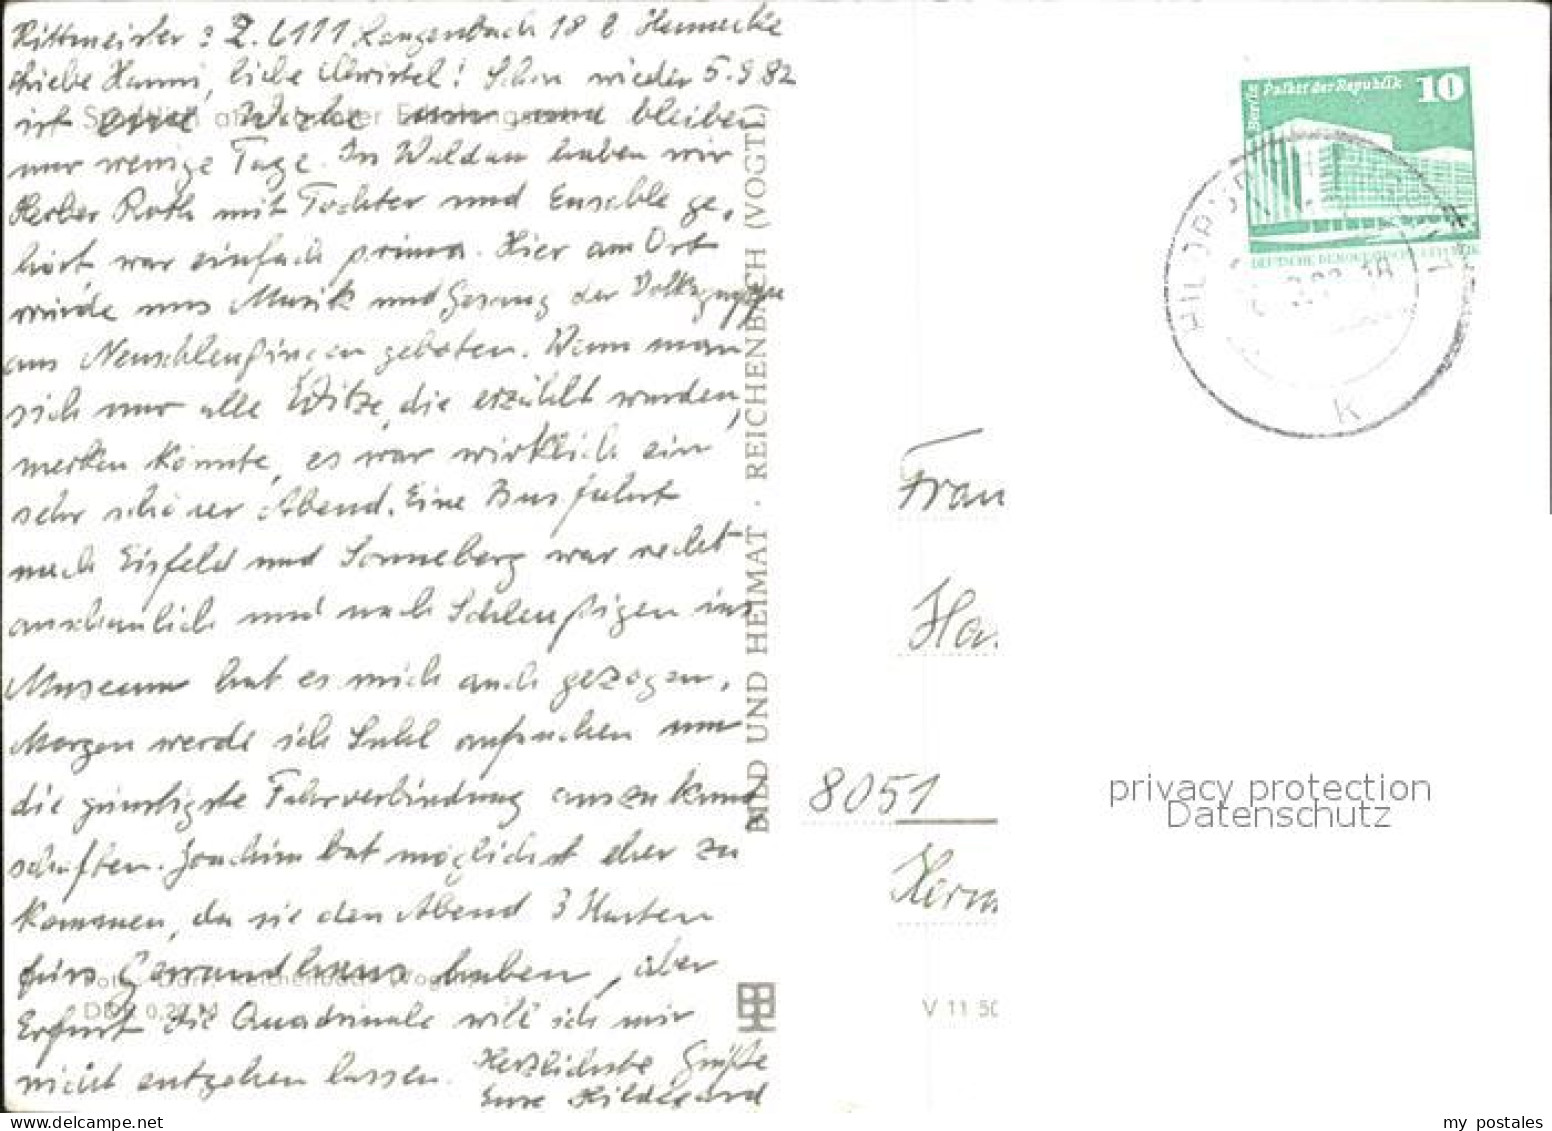 Rittmeister : Z. 6111 Langenbach 18 b Hennecke
Liebe Hanni, liebe Christel! Schon wieder 5.9.82
ist eine Woche um und bleiben
nur wenige Tage. In Waldau haben wir
Herber Roth mit Tochter und Ensemble ge-
hört, war einfach prima. Hier am Ort
wurde uns Musik und Gesang der Volksgruppe
aus geboten. Wenn man
sich nur alle Witze, die erzählt wurden,
merken könnte, es war wirklich ein
sehr schöner Abend. Eine Busfahrt
nach Eisfeld und Sonneberg war recht
anschaulich und nach Schleußigen ins
Museum hat es mich auch gezogen.
Morgen werde ich Suhl aufsuchen um
die günstigste Fahrverbindung auszukund-
schaften. Joachim bat möglichst eher zu
kommen, da sie den Abend 3 Karten
fürs Gewandhaus haben, aber
Erfurt die Quadrinale will ich mir
nicht entgehen lassen. Herzlichste Grüße
Eure Hildegard
BILD UND HEIMAT · REICHENBACH (VOGTL)
V 11 50
Berlin Palast der Republik 10
DEUTSCHE DEMOKRATISCHE REPUBLIK
k
Frau
Ha
8051
Herm
privacy protection
Datenschutz
my postales